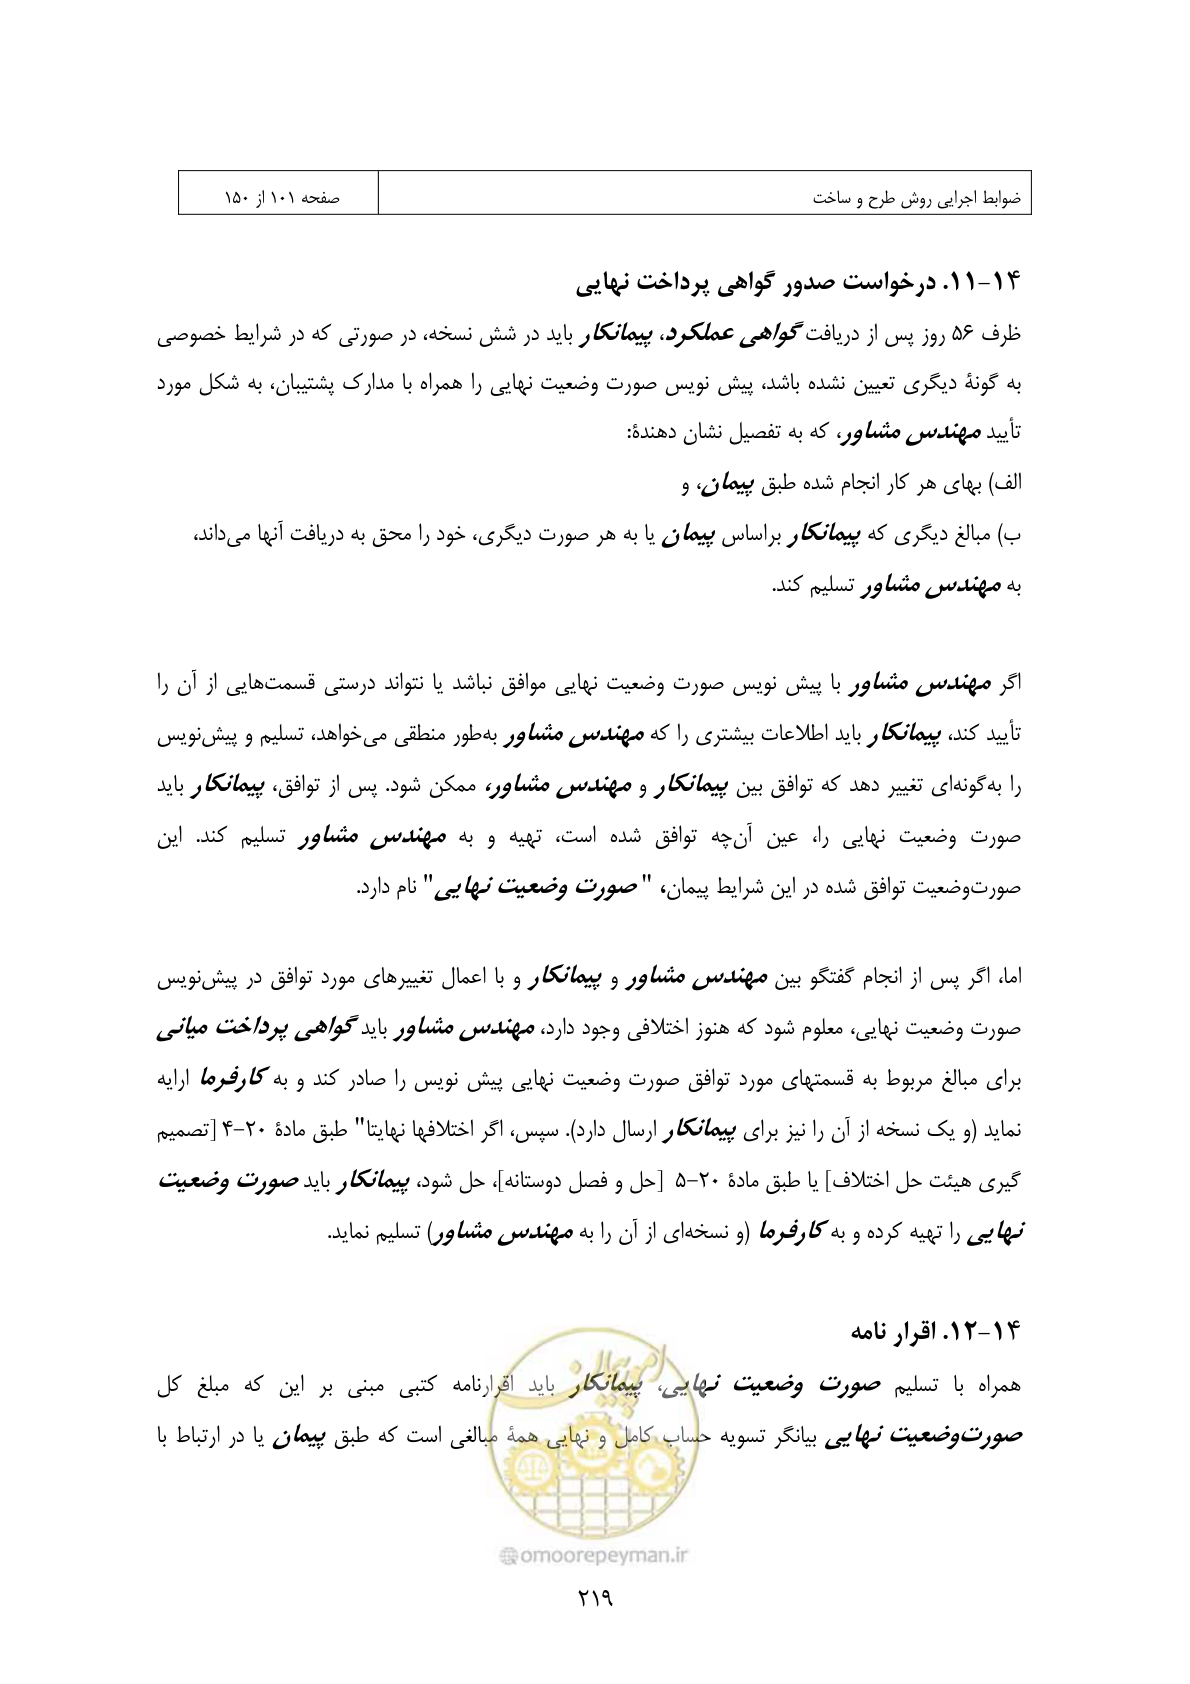 ضوابط اجرایی روش طرح و ساخت
صفحه ۱۰۱ از ۱۵۰
۱۴-۱۱. درخواست صدور گواهی پرداخت نهایی
ظرف ۵۶ روز پس از دریافت گواهی عملکرد، پیمانکار باید در شش نسخه، در صورتی که در شرایط خصوصی
به گونهٔ دیگری تعیین نشده باشد، پیش نویس صورت وضعیت نهایی را همراه با مدارک پشتیبان، به شکل مورد
تأیید مهندس مشاور، که به تفصیل نشان دهندهٔ:
الف) بهای هر کار انجام شده طبق پیمان، و
ب) مبالغ دیگری که پیمانکار براساس پیمان یا به هر صورت دیگری، خود را محق به دریافت آنها می‌داند،
به مهندس مشاور تسلیم کند.
اگر مهندس مشاور با پیش نویس صورت وضعیت نهایی موافق نباشد یا نتواند درستی قسمت‌هایی از آن را
تأیید کند، پیمانکار باید اطلاعات بیشتری را که مهندس مشاور به‌طور منطقی می‌خواهد، تسلیم و پیش‌نویس
را به‌گونه‌ای تغییر دهد که توافق بین پیمانکار و مهندس مشاور، ممکن شود. پس از توافق، پیمانکار باید
صورت وضعیت نهایی را، عین آن‌چه توافق شده است، تهیه و به مهندس مشاور تسلیم کند. این
صورت‌وضعیت توافق شده در این شرایط پیمان، " صورت وضعیت نهایی" نام دارد.
اما، اگر پس از انجام گفتگو بین مهندس مشاور و پیمانکار و با اعمال تغییرهای مورد توافق در پیش‌نویس
صورت وضعیت نهایی، معلوم شود که هنوز اختلافی وجود دارد، مهندس مشاور باید گواهی پرداخت میانی
برای مبالغ مربوط به قسمتهای مورد توافق صورت وضعیت نهایی پیش نویس را صادر کند و به کارفرما ارایه
نماید (و یک نسخه از آن را نیز برای پیمانکار ارسال دارد). سپس، اگر اختلافها نهایتا" طبق مادهٔ ۲۰-۴ [تصمیم
گیری هیئت حل اختلاف] یا طبق مادهٔ ۲۰-۵ [حل و فصل دوستانه]، حل شود، پیمانکار باید صورت وضعیت
نهایی را تهیه کرده و به کارفرما (و نسخه‌ای از آن را به مهندس مشاور) تسلیم نماید.
۱۴-۱۲. اقرار نامه
همراه با تسلیم صورت وضعیت نهایی، پیمانکار باید اقرارنامه کتبی مبنی بر این که مبلغ کل
صورت‌وضعیت نهایی بیانگر تسویه حساب کامل و نهایی همهٔ مبالغی است که طبق پیمان یا در ارتباط با
امور پیمان
@omoorepeyman.ir
۲۱۹